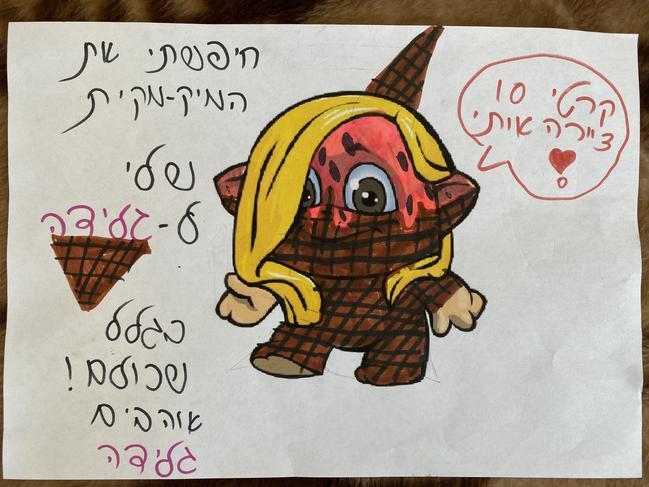 חיפשתי את
המיק-מקית
שלי
ל-גלידה
בגלל
שכולם!
אוהבים
גלידה
קרטי
ציירה אותי